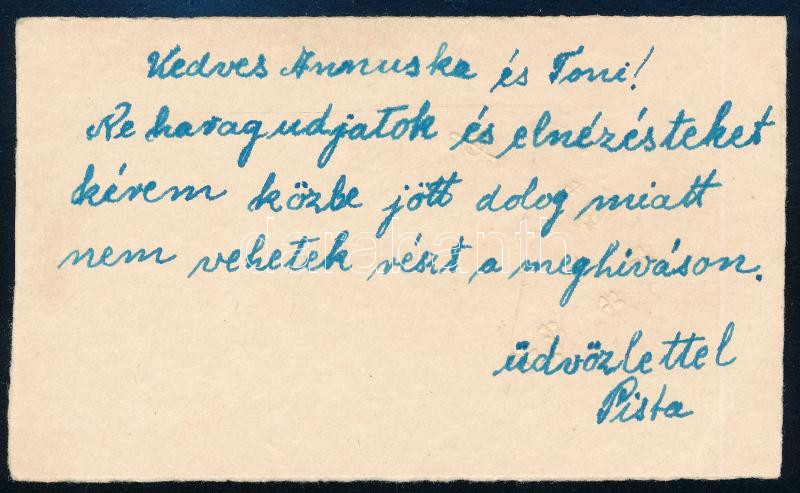 Kedves Annuska és Toni!
Ne haragudjatok és elnézésteket
kérem közbe jött dolog miatt
nem vehetek részt a meghiváson.
darabanth
üdvözlettel
Pista